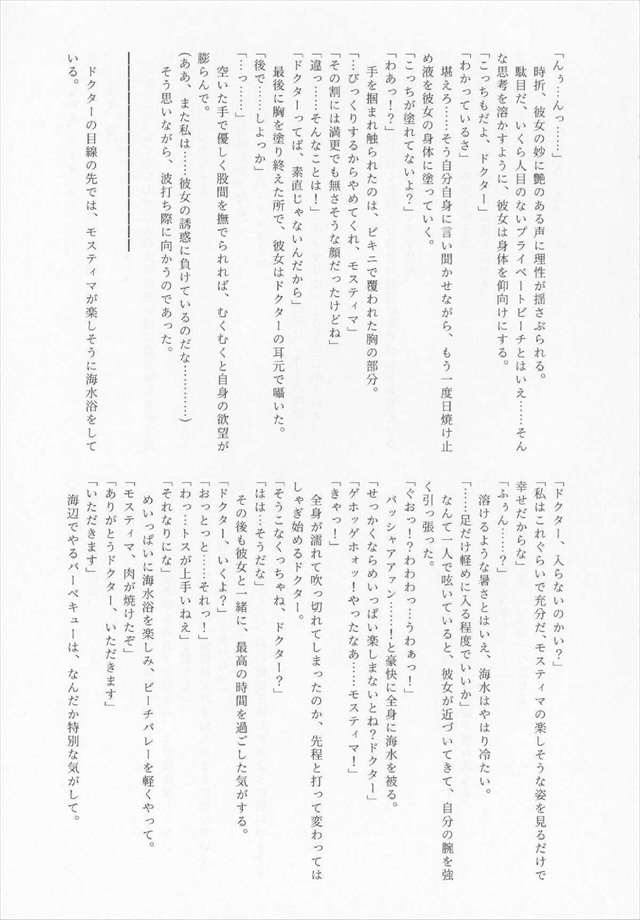 「んぅ…んっ……」
　時折、彼女の妙に艶のある声に理性が揺さぶられる。
　駄目だ、いくら人目のないプライベートビーチとはいえ……そん
な思考を溶かすように、彼女は身体を仰向けにする。
「こっちもだよ、ドクター」
「わかっているさ」
　堪えろ……そう自分自身に言い聞かせながら、もう一度日焼け止
め液を彼女の身体に塗っていく。
「こっちが塗れてないよ？」
「わあっ！？」
　手を掴まれ触られたのは、ビキニで覆われた胸の部分。
「…びっくりするからやめてくれ、モスティマ」
「その割には満更でも無さそうな顔だったけどね」
「違っ……そんなことは！」
「ドクターってば、素直じゃないんだから」
　最後に胸を塗り終えた所で、彼女はドクターの耳元で囁いた。
「後で……しよっか」
「…っ……」
　空いた手で優しく股間を撫でられれば、むくむくと自身の欲望が
膨らんで。
（ああ、また私は……彼女の誘惑に負けているのだな…………）
　そう思いながら、波打ち際に向かうのであった。
――――――――――――
　ドクターの目線の先では、モスティマが楽しそうに海水浴をして
いる。
「ドクター、入らないのかい？」
「私はこれぐらいで充分だ、モスティマの楽しそうな姿を見るだけで
幸せだからな」
「ふぅん……？」
　溶けるような暑さとはいえ、海水はやはり冷たい。
「……足だけ軽めに入る程度でいいか」
　なんて一人で呟いていると、彼女が近づいてきて、自分の腕を強
く引っ張った。
「ぐおっ！？わわわっ…うわぁっ！」
　バッシャアアァン……！と豪快に全身に海水を被る。
「せっかくならめいっぱい楽しまないとね？ドクター」
「ゲホッゲホォッ！やったなあ……モスティマ！」
「きゃっ！」
　全身が濡れて吹っ切れてしまったのか、先程と打って変わっては
しゃぎ始めるドクター。
「そうこなくっちゃね、ドクター？」
「はは…そうだな」
　その後も彼女と一緒に、最高の時間を過ごした気がする。
「ドクター、いくよ？」
「おっとっと……それっ！」
「わっ…トスが上手いねえ」
「それなりにな」
　めいっぱいに海水浴を楽しみ、ビーチバレーを軽くやって。
「モスティマ、肉が焼けたぞ」
「ありがとうドクター、いただきます」
「いただきます」
　海辺でやるバーベキューは、なんだか特別な気がして。